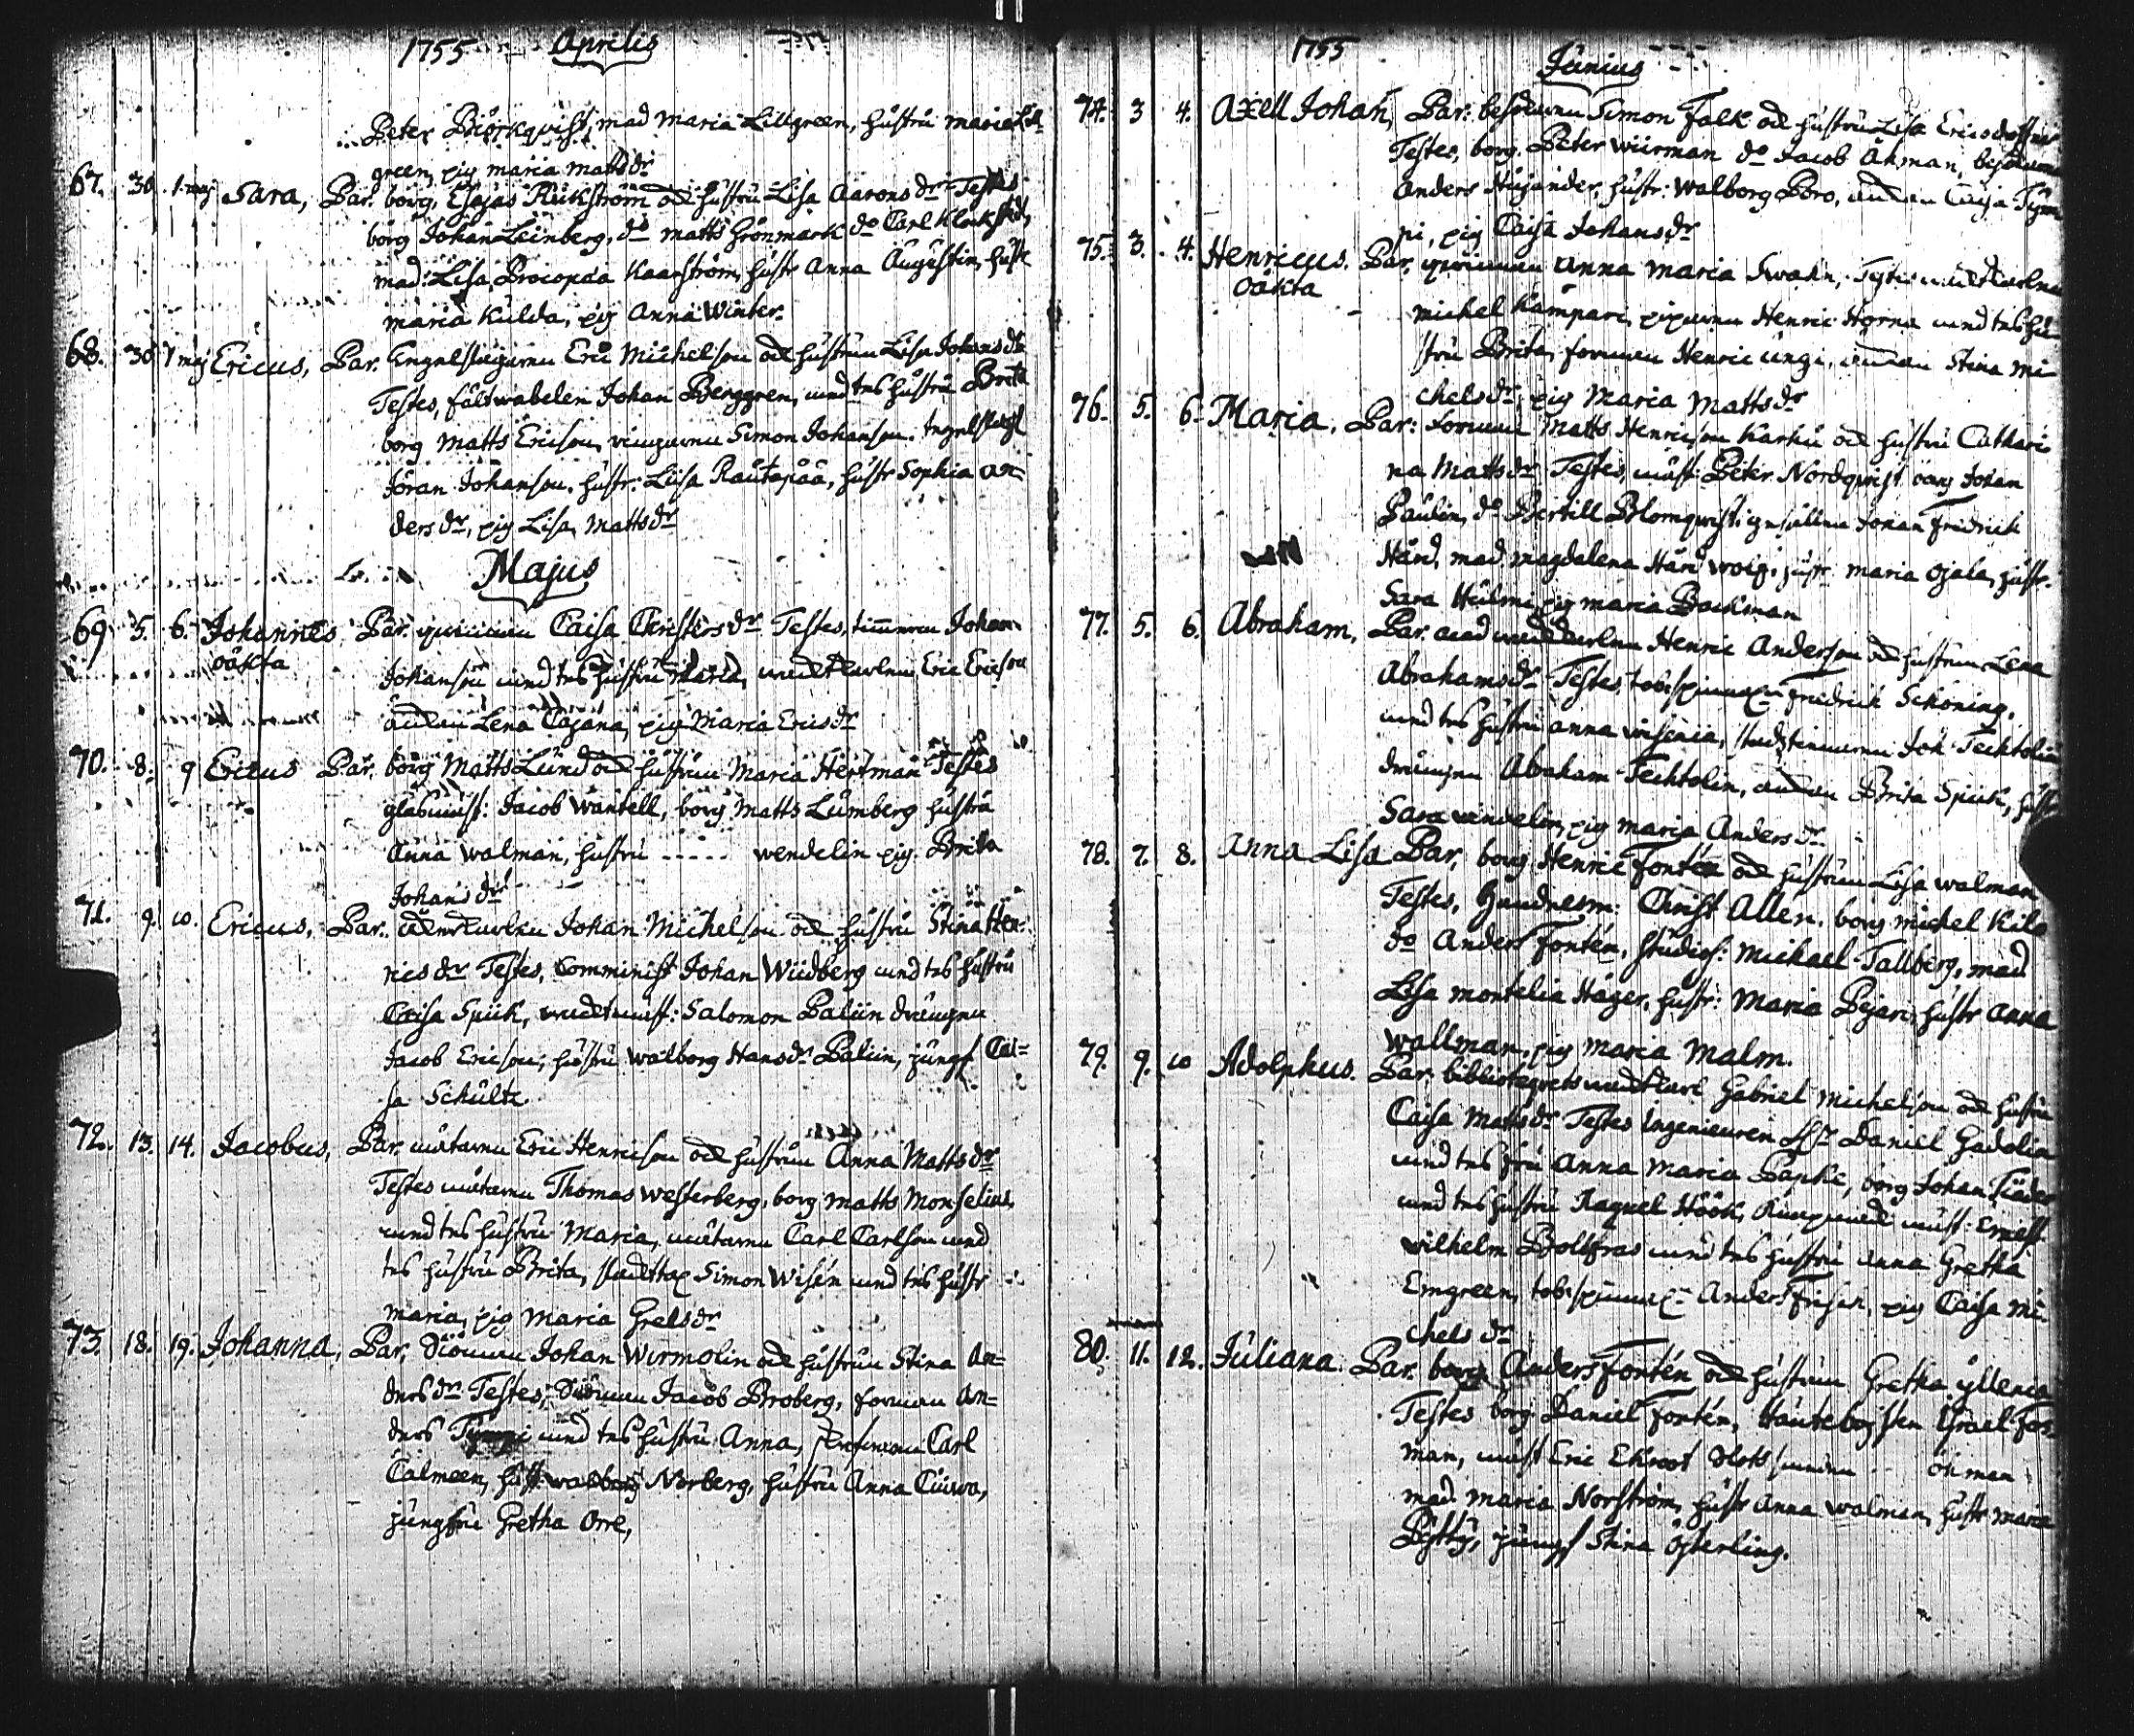 1755 Aprilis
Peter Biörkqvist, mad Maria Lillgreen, hustru maria Lill-
green, pig maria matts dr
67. 30. 1 maj Sara, Par. borg. Esajas Rükström och hustru Lisa Aarons dr Testes
borg Johan Leinberg, do matts Grönmark do Carl
mad: Lisa Procopaa Kaarström, hustr Anna Augustin, hustr
maria Kulda, pig Anna Winter.
68. 30 1 maj Ericus, Par. Eric Michelson och hustrun Lisa Johans dr
Testes, fältwäbelen Johan Berggren, med dess hustru Brita
borg Matts Ericson, Simon Johanson.
Jöran Johanson. hustr: Lisa Rautapää, hustr Sophia An-
ders dr, pig Lisa Matts dr
Majus
69 5. 6. Johannes Par. qvinnan Caisa Christers dr Testes, timmerm Johan
oäkta
Johanson med dess hustru Maria, Eric Ericson
änkan Lena Cajana, pig Maria Erics dr
70. 8. 9 Ericus Par. borg Matts Lund och hustrun Maria Hertman Testes
glasmäst: Jacob Wantell, borg Matts Lumberg hustru
Anna Walman, hustru ..... wendelin pig. Brita
Johans dr
71. 9. 10. Ericus, Par. Johan Michelson och hustru Stina Hen-
rics dr Testes, Comminist Johan Wiidberg med dess hustru
Caisa Spiik, Salomon Paliin drängen
Jacob Ericson, hustru Walborg Hans dr Paliin, jungf Cai=
sa Schultz
72. 13. 14. Jacobus, Par. Eric Henricson och hustrun Anna Matts dr
Testes Thomas Westerberg, borg Matts Monselius
med dess hustru Maria, Carl Carlson med
dess hustru Brita, Simon Wisén med dess hustr
maria, pig Maria Grels dr
73. 18. 19. Johanna, Par. Johan Wirmolin och hustrun Stina An=
ders dr Testes, Jacob Broberg, forman An=
ders med dess hustru Anna, Carl
Calmeen, hustr walborg Norberg, hustru Anna Cuiwa,
jungfru Gretha Orre,
1755
Junius
74. 3 4. Axell Johan, Par: besökaren Simon Falk och hustru Lisa
Testes, borg. Peter wiirman do Jacob Åkman, besökaren
Anders Hujander, hustr: Walborg Poro, änkan
pi, pig Caisa Johans dr
75. 3. 4. Henricus. Par. qvinnan Anna Maria Swahn, Testes
oäkta
michel Kämpari, Henric Horna med dess hu-
stru Brita, forman Henric Ungi, änkan Stina Mi-
chels dr, pig Maria Matts dr
76. 5. 6. Maria. Par: forman Matts Henricson Karhu och hustru Cathari-
na Matts dr Testes, mäst: Peter Nordqvist borg Johan
Paulin, do Bertill Blomqvist, gesällen Johan Fridrich
Hård, mad. magdalena Hård hustr maria Ojala, hustr.
Sara Hulmi, pig maria Backman
77. 5. 6. Abraham, Par. Henric Anderson och hustrun Lena
Abrahams dr Testes, Fredrich Schöning,
med dess hustru anna Joh: Techtolin
drängen Abraham Techtolin, änkan Brita Spiik, hustr
Sara wendelin, pig maria Anders dr
78. 7. 8. Anna Lisa Par, borg Henric Fontén och hustrun Lisa walman
Testes, Handelsm: Christ Allén, borg michel Kilo
do Anders Fontén, studios: Michael Tallberg, mad
Lisa montelia Häger, hustr: Maria Pejari, hustr Anna
wallman, pig maria Malm.
79. 9. 10 Adolphus. Par. Gabriel Michelson och hustru
Caisa Matts dr Testes Ingenieuren Hr Daniel Gadolin
med dess fru Anna Maria Papke, borg Johan
med dess hustru Raquel Höök, mäst: Ernst
wilhelm med dess hustru anna Gretha
Emgreen, Anders pig Caisa Mi-
chels dr
80. 11. 12. Juliana. Par. borg Anders Fontén och hustrun Gretha
Testes borg Daniel Fontén, Hauteboisten Israel For-
man, mäst Eric Ekroot öhman
mad. maria Norström, hustr Anna walman, hustr maria
jungf Stina Österling.